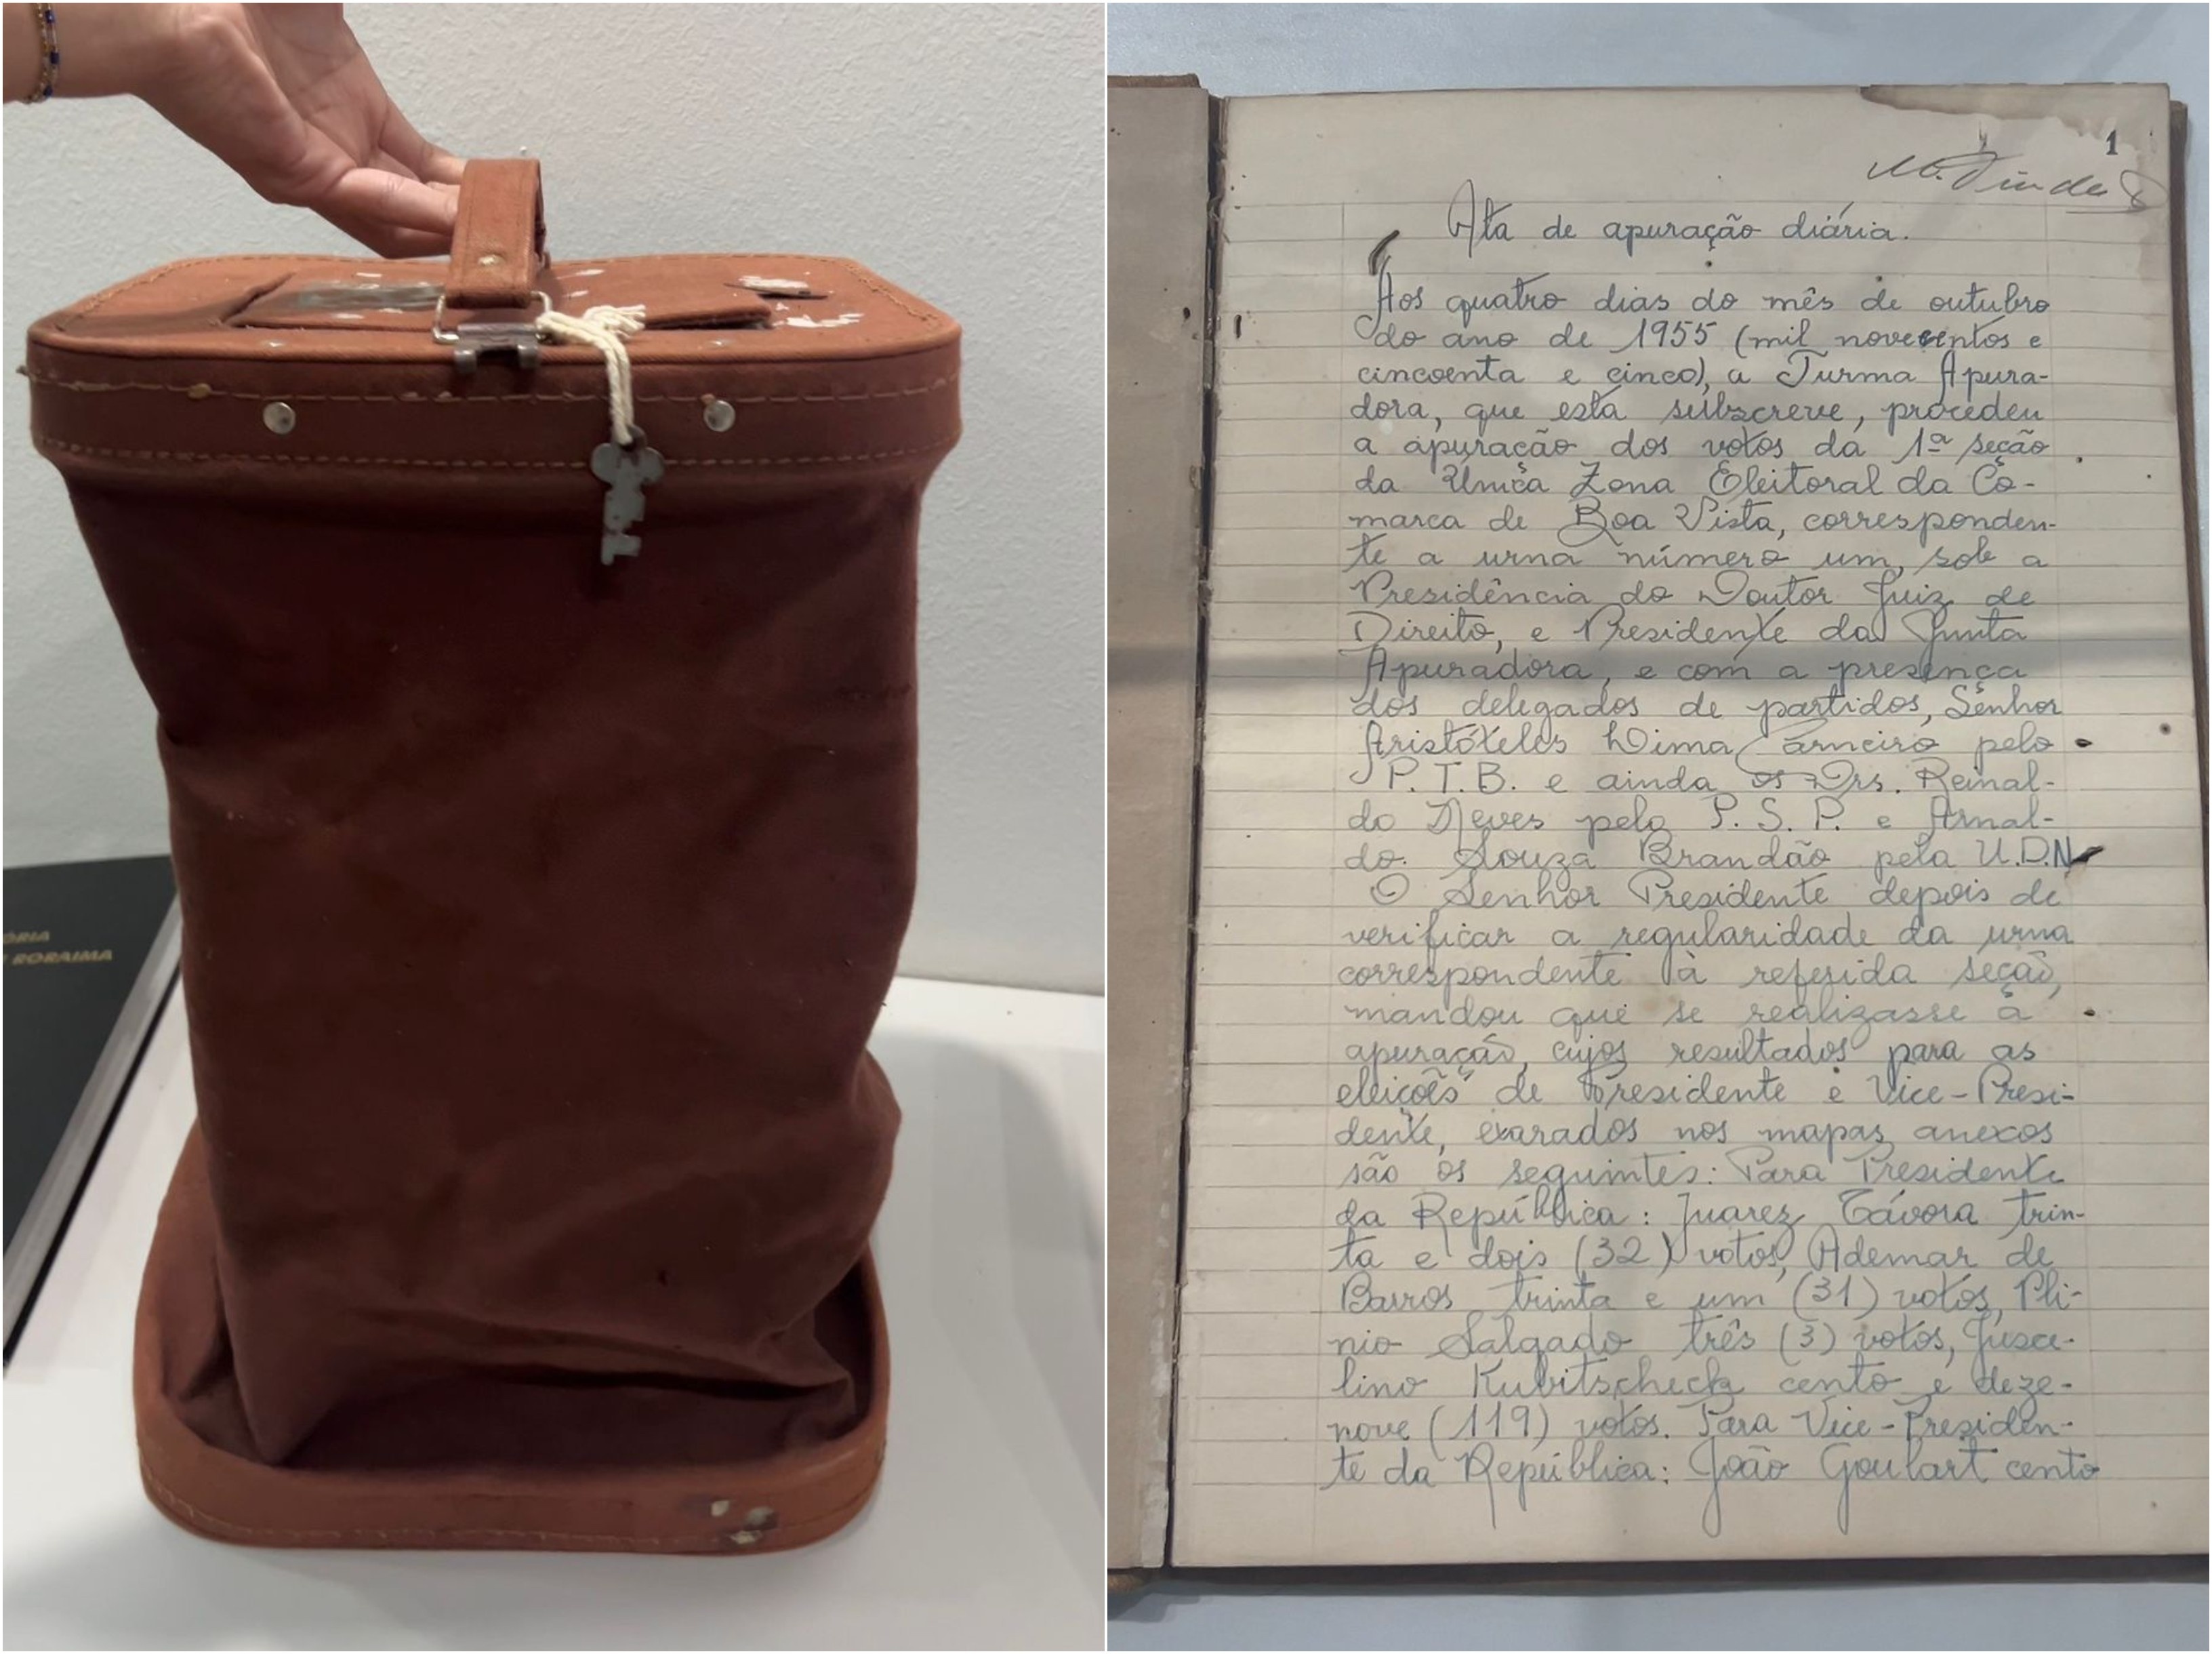 ÓRIA
RORAIMA
1
Ata de apuração diária.
Aos quatro dias do mês de outubro
do ano de 1955 (mil novecentos e
cincoenta e cinco), a Turma Apura-
dora, que esta subscreve, procedeu
a apuração dos votos da 1ª seção
da Única Zona Eleitoral da Co-
marca de Boa Vista, corresponden-
te a urna número um, sob a
Presidência do Doutor Juiz de
Direito, e Presidente da Junta
Apuradora, e com a presença
dos delegados de partidos, Senhor
Aristóteles Lima Carneiro pelo
P.T.B. e ainda os Drs. Reinal-
do Neves pelo P. S. P. e Arnal-
do Souza Brandão pela U.D.N.
O Senhor Presidente depois de
verificar a regularidade da urna
correspondente à referida seção,
mandou que se realizasse a
apuração, cujos resultados para as
eleições de Presidente e Vice-Presi-
dente, exarados nos mapas anexos
são os seguintes: Para Presidente
da República: Juarez Távora trin-
ta e dois (32) votos, Ademar de
Barros trinta e um (31) votos, Plí-
nio Salgado três (3) votos, Jusce-
lino Kubitscheck cento e deze-
nove (119) votos. Para Vice-Presiden-
te da República: João Goulart cento